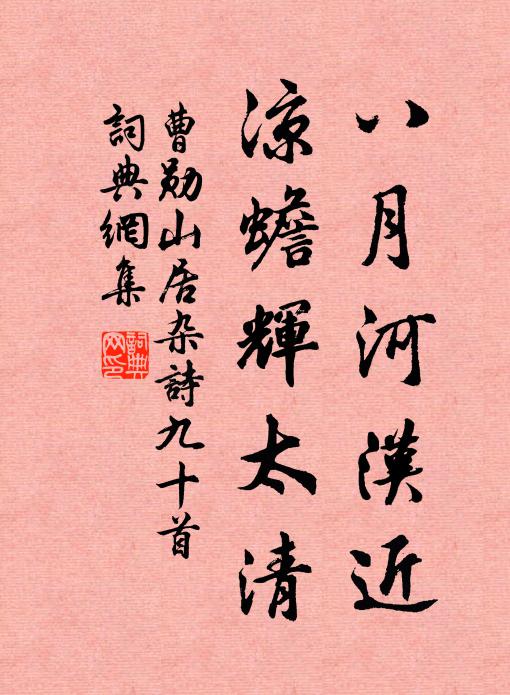 八月河漢近
涼蟾輝太清
曹勛山居杂詩九十首
詞典網集
詞典网印